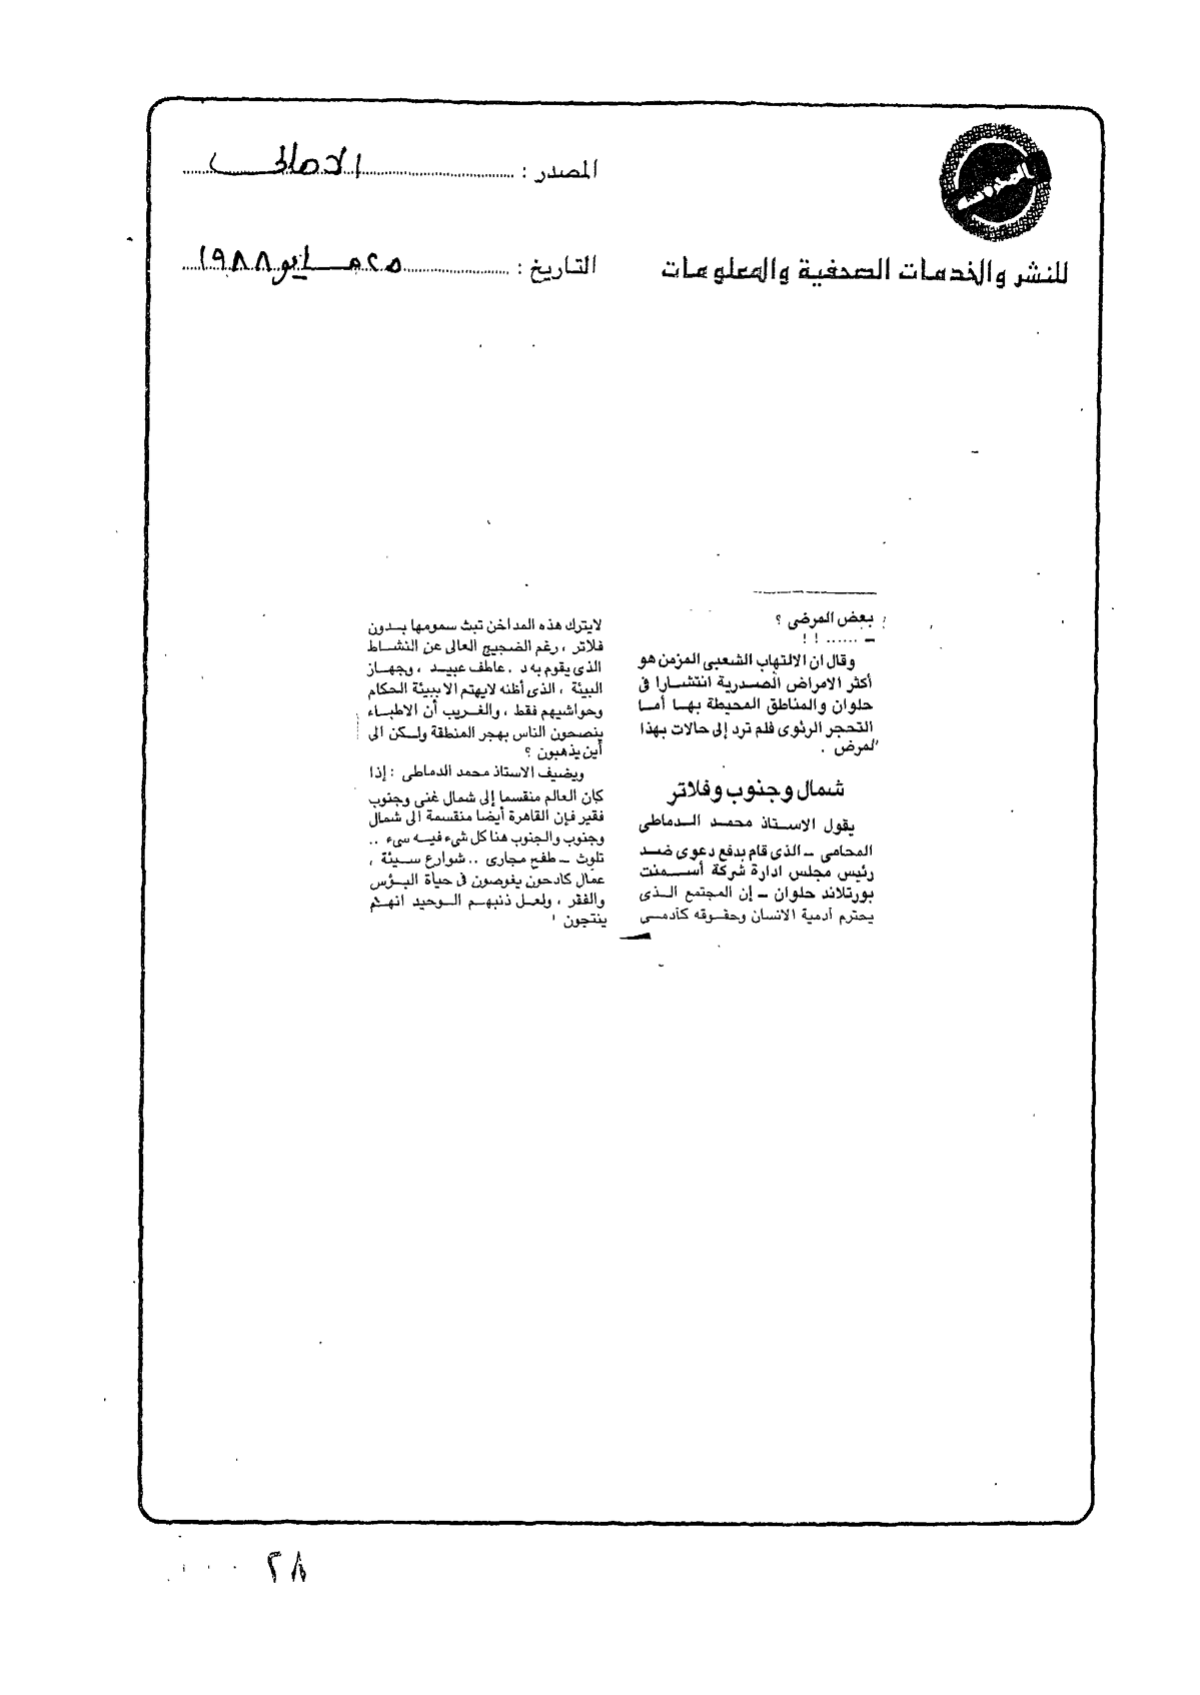 المصدر : الاهالى
للنشر والخدمات الصحفية والمعلومات
التاريخ : ٢٥ مايو ١٩٨٨
بعض المرضى ؟
ــ ...... ! !
وقال ان الالتهاب الشعبى المزمن هو
أكثر الامراض الصدرية انتشارا فى
حلوان والمناطق المحيطة بها أما
التحجر الرئوى فلم ترد إلى حالات بهذا
المرض .
شمال وجنوب وفلاتر
يقول الاستاذ محمد الدماطى
المحامى ــ الذى قام بدفع دعوى ضد
رئيس مجلس ادارة شركة أسمنت
بورتلاند حلوان ــ إن المجتمع الذى
يحترم أدمية الانسان وحقوقه كآدمى
لايترك هذه المداخن تبث سمومها بدون
فلاتر ، رغم الضجيج العالى عن النشاط
الذى يقوم به د . عاطف عبيد ، وجهاز
البيئة ، الذى أظنه لايهتم الا ببيئة الحكام
وحواشيهم فقط ، والغريب أن الاطباء
ينصحون الناس بهجر المنطقة ولكن الى
أين يذهبون ؟
ويضيف الاستاذ محمد الدماطى : إذا
كان العالم منقسما إلى شمال غنى وجنوب
فقير فإن القاهرة أيضا منقسمة الى شمال
وجنوب والجنوب هنا كل شىء فيه سىء ..
تلوث ــ طفح مجارى .. شوارع سيئة ،
عمال كادحون يغوصون فى حياة البؤس
والفقر ، ولعل ذنبهم الوحيد انهم
ينتجون !
٢٨